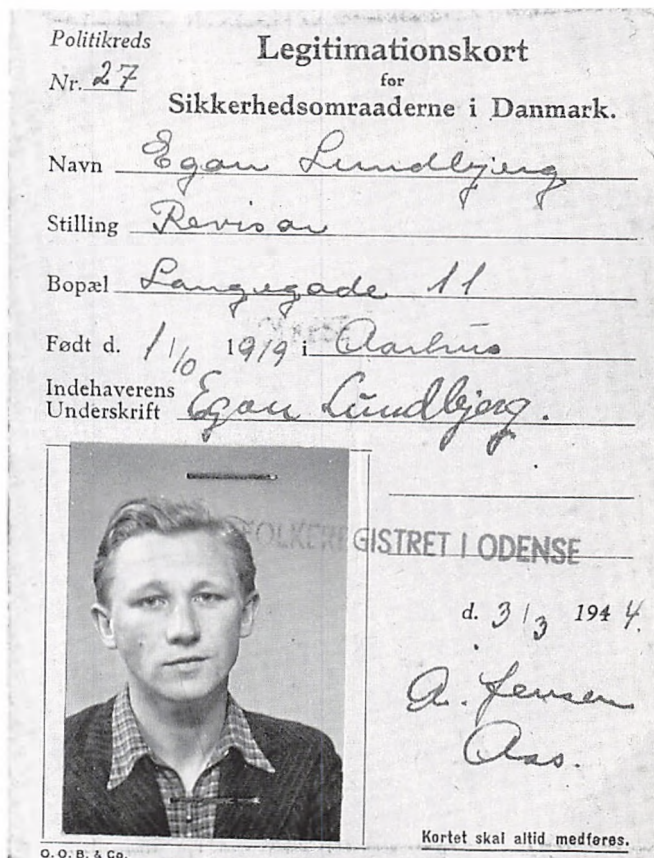 Politikreds
Nr. 27
Legitimationskort
for
Sikkerhedsomraaderne i Danmark.
Navn Egon Lundbjerg
Stilling Revisor
Bopæl Langegade 11
Født d. 1/10 1919 i Aarhus
Indehaverens
Underskrift Egon Lundbjerg.
FOLKEREGISTRET I ODENSE
d. 3/3 1944.
A. Jensen
Ass.
Kortet skal altid medføres.
O. O. B. & Co.